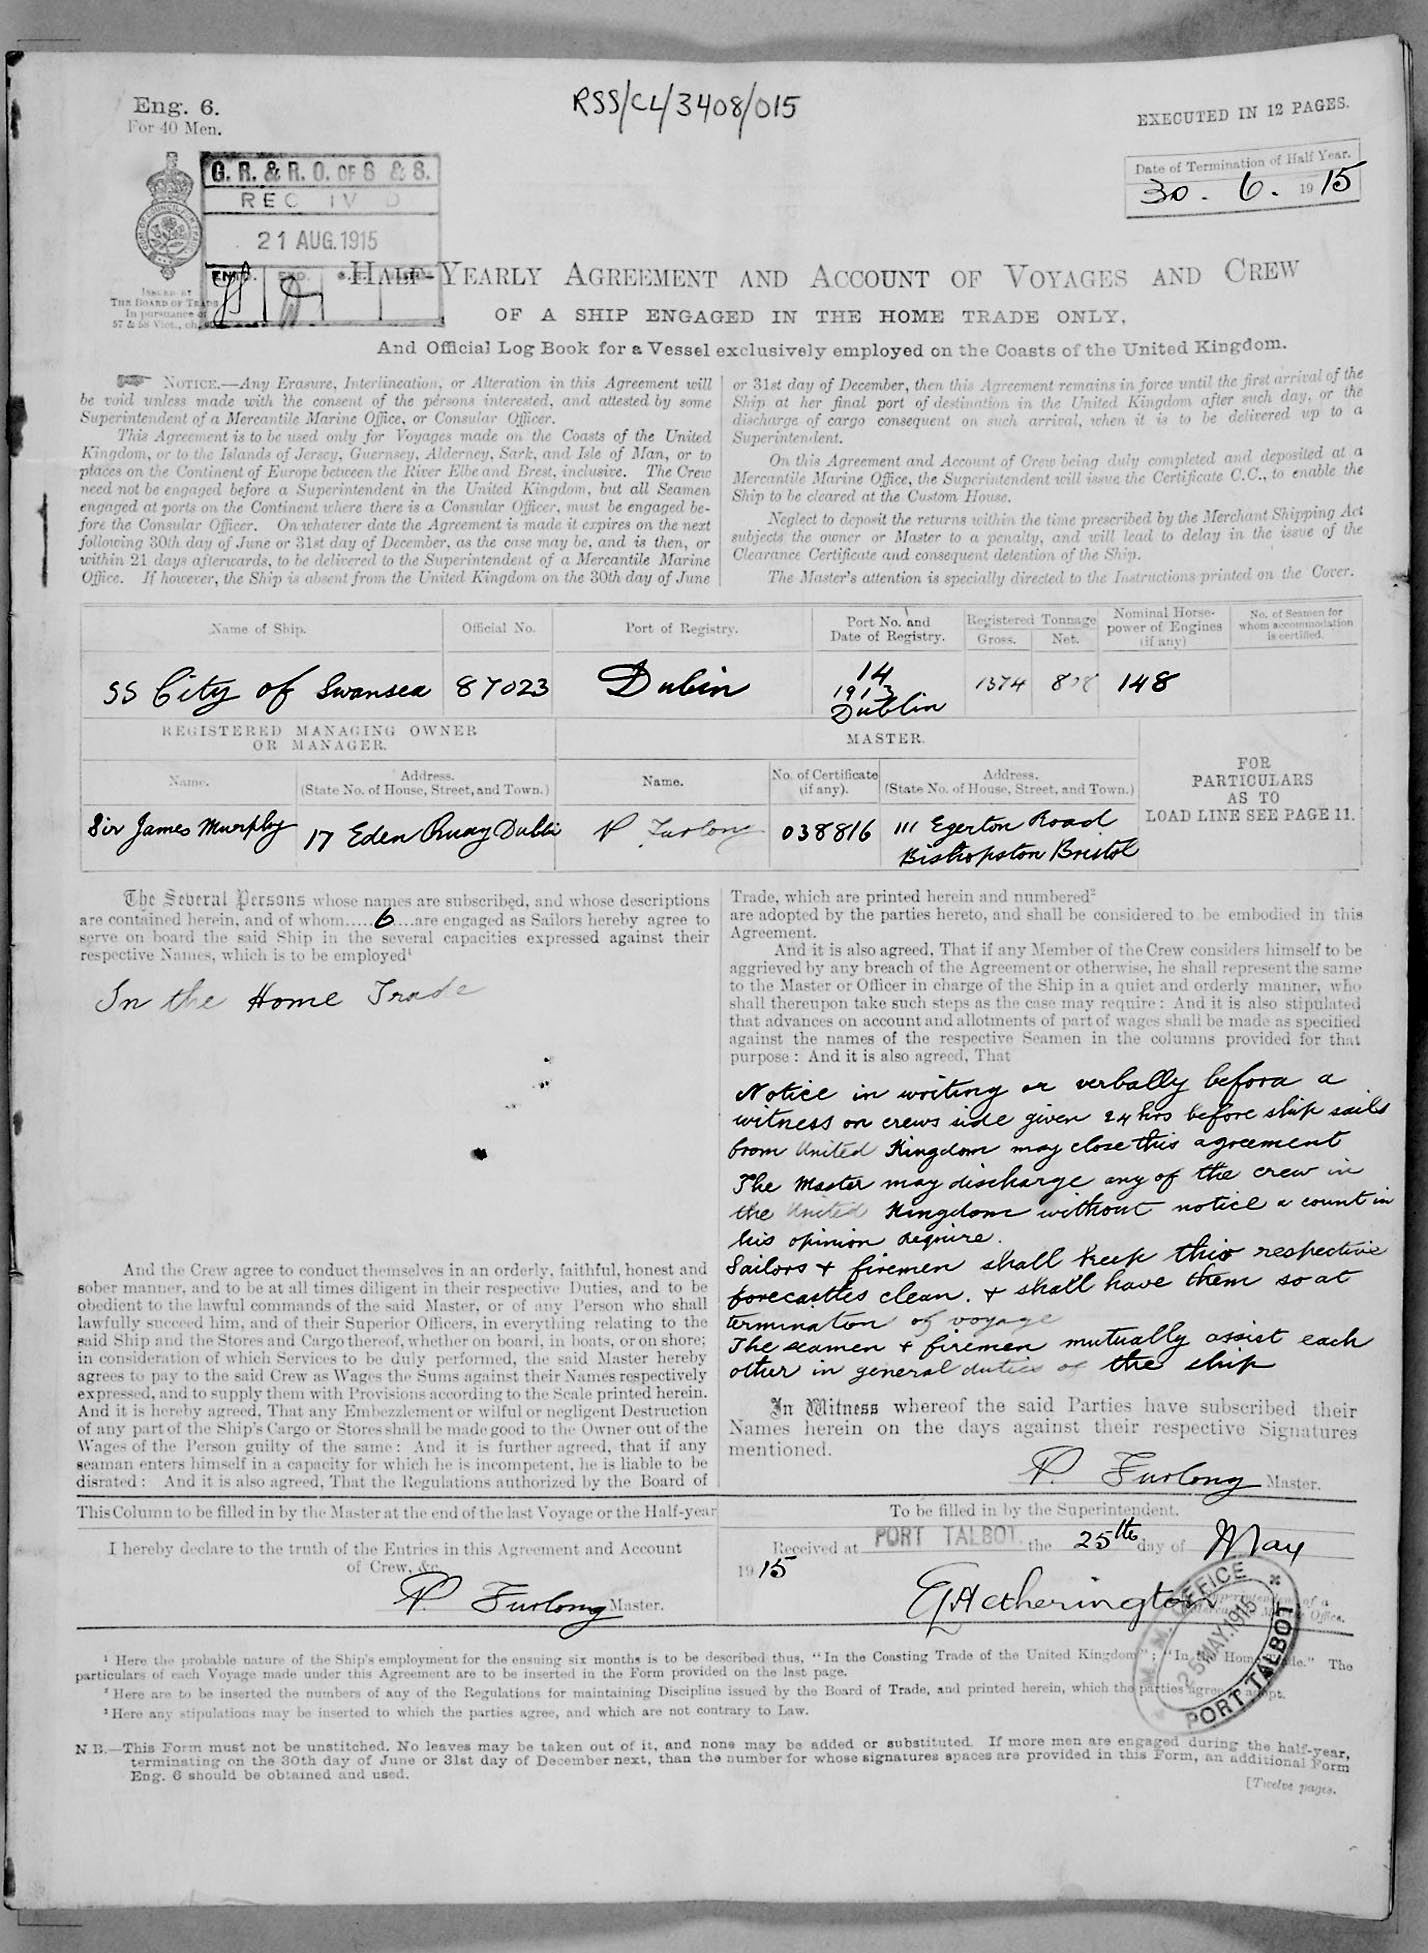 RSS/CL/3408/015
Eng. 6.
For 40 Men.
EXECUTED IN 12 PAGES.
Date of Termination of Half Year.
30. 6. 1915
G. R. & R. O. OF S & S.
REC IV D
21 AUG. 1915
ISSUED BY
THE BOARD OF TRADE
In pursuance of
57 & 58 Vict., ch.
HALF-YEARLY AGREEMENT AND ACCOUNT OF VOYAGES AND CREW
OF A SHIP ENGAGED IN THE HOME TRADE ONLY,
And Official Log Book for a Vessel exclusively employed on the Coasts of the United Kingdom.
NOTICE.—Any Erasure, Interlineation, or Alteration in this Agreement will
be void unless made with the consent of the persons interested, and attested by some
Superintendent of a Mercantile Marine Office, or Consular Officer.
This Agreement is to be used only for Voyages made on the Coasts of the United
Kingdom, or to the Islands of Jersey, Guernsey, Alderney, Sark, and Isle of Man, or to
places on the Continent of Europe between the River Elbe and Brest, inclusive. The Crew
need not be engaged before a Superintendent in the United Kingdom, but all Seamen
engaged at ports on the Continent where there is a Consular Officer, must be engaged be-
fore the Consular Officer. On whatever date the Agreement is made it expires on the next
following 30th day of June or 31st day of December, as the case may be, and is then, or
within 21 days afterwards, to be delivered to the Superintendent of a Mercantile Marine
Office. If however, the Ship is absent from the United Kingdom on the 30th day of June
or 31st day of December, then this Agreement remains in force until the first arrival of the
Ship at her final port of destination in the United Kingdom after such day, or the
discharge of cargo consequent on such arrival, when it is to be delivered up to a
Superintendent.
On this Agreement and Account of Crew being duly completed and deposited at a
Mercantile Marine Office, the Superintendent will issue the Certificate C.C., to enable the
Ship to be cleared at the Custom House.
Neglect to deposit the returns within the time prescribed by the Merchant Shipping Act
subjects the owner or Master to a penalty, and will lead to delay in the issue of the
Clearance Certificate and consequent detention of the Ship.
The Master's attention is specially directed to the Instructions printed on the Cover.
Name of Ship. Official No. Port of Registry. Port No. and Date of Registry. Registered Tonnage Gross. Net. Nominal Horse-power of Engines (if any) No. of Seamen for whom accommodation is certified.
SS City of Swansea 87023 Dublin 14 1913 Dublin 1374 148
REGISTERED MANAGING OWNER
OR MANAGER.
MASTER.
Name. Address. (State No. of House, Street, and Town.) Name. No. of Certificate (if any). Address. (State No. of House, Street, and Town.)
FOR
PARTICULARS
AS TO
LOAD LINE SEE PAGE 11.
Sir James Murphy 17 Eden Quay Dublin P Furlong 038816 111 Egerton Road
Bishopston Bristol
The Several Persons whose names are subscribed, and whose descriptions
are contained herein, and of whom.....6....are engaged as Sailors hereby agree to
serve on board the said Ship in the several capacities expressed against their
respective Names, which is to be employed¹
In the Home Trade
And the Crew agree to conduct themselves in an orderly, faithful, honest and
sober manner, and to be at all times diligent in their respective Duties, and to be
obedient to the lawful commands of the said Master, or of any Person who shall
lawfully succeed him, and of their Superior Officers, in everything relating to the
said Ship and the Stores and Cargo thereof, whether on board, in boats, or on shore;
in consideration of which Services to be duly performed, the said Master hereby
agrees to pay to the said Crew as Wages the Sums against their Names respectively
expressed, and to supply them with Provisions according to the Scale printed herein.
And it is hereby agreed, That any Embezzlement or wilful or negligent Destruction
of any part of the Ship's Cargo or Stores shall be made good to the Owner out of the
Wages of the Person guilty of the same: And it is further agreed, that if any
seaman enters himself in a capacity for which he is incompetent, he is liable to be
disrated: And it is also agreed, That the Regulations authorized by the Board of
Trade, which are printed herein and numbered²
are adopted by the parties hereto, and shall be considered to be embodied in this
Agreement.
And it is also agreed, That if any Member of the Crew considers himself to be
aggrieved by any breach of the Agreement or otherwise, he shall represent the same
to the Master or Officer in charge of the Ship in a quiet and orderly manner, who
shall thereupon take such steps as the case may require: And it is also stipulated
that advances on account and allotments of part of wages shall be made as specified
against the names of the respective Seamen in the columns provided for that
purpose: And it is also agreed, That
Notice in writing or verbally before a
witness on crews side given 24 hrs before ship sails
from United Kingdom may close this agreement
The Master may discharge any of the crew in
the United Kingdom without notice
his opinion require.
Sailors & firemen shall keep this respective
forecastles clean. & shall have them so at
termination of voyage
The seamen & firemen mutually assist each
other in general duties of the ship
In Witness whereof the said Parties have subscribed their
Names herein on the days against their respective Signatures
mentioned.
P. Furlong Master.
This Column to be filled in by the Master at the end of the last Voyage or the Half-year
I hereby declare to the truth of the Entries in this Agreement and Account
of Crew, &c.
P. Furlong Master.
To be filled in by the Superintendent.
Received at PORT TALBOT. the 25th day of May
1915
Hetherington
M. M. OFFICE
25 MAY. 1915
PORT TALBOT
¹ Here the probable nature of the Ship's employment for the ensuing six months is to be described thus, "In the Coasting Trade of the United Kingdom"; "In the Home Trade." The
particulars of each Voyage made under this Agreement are to be inserted in the Form provided on the last page.
² Here are to be inserted the numbers of any of the Regulations for maintaining Discipline issued by the Board of Trade, and printed herein, which the parties agree to adopt.
³ Here any stipulations may be inserted to which the parties agree, and which are not contrary to Law.
N.B.—This Form must not be unstitched. No leaves may be taken out of it, and none may be added or substituted. If more men are engaged during the half-year,
terminating on the 30th day of June or 31st day of December next, than the number for whose signatures spaces are provided in this Form, an additional Form
Eng. 6 should be obtained and used.
[Twelve pages.